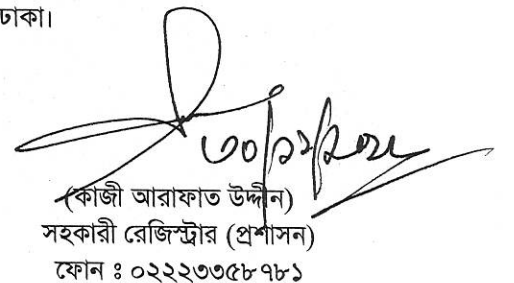 ঢাকা।
(কাজী আরাফাত উদ্দীন)
সহকারী রেজিস্ট্রার (প্রশাসন)
ফোন ঃ ০২২২৩৩৫৮৭৮১